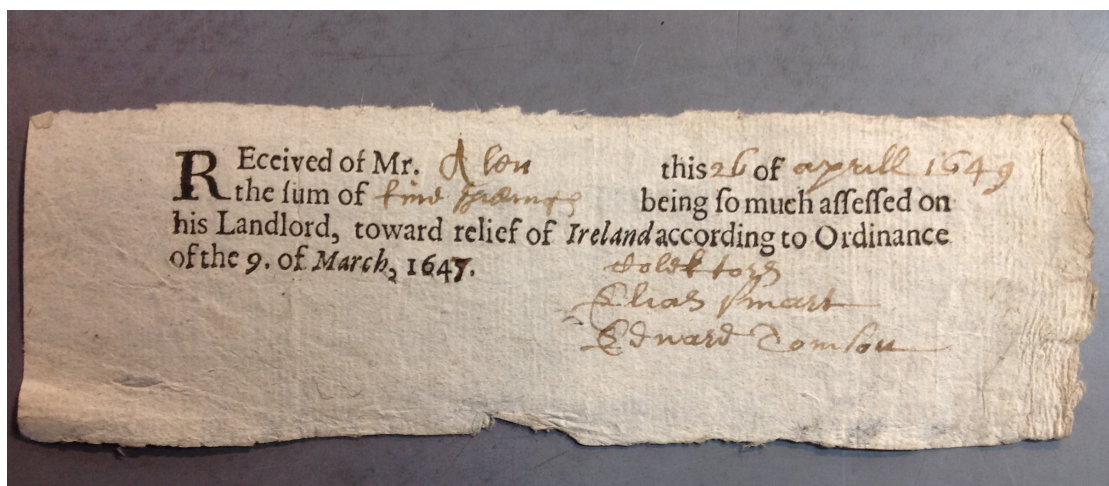 REceived of Mr. Alen this 26 of aprill 1649
the ſum of being ſo much aſſeſſed on
his Landlord, toward relief of Ireland according to Ordinance
of the 9. of March, 1647.
Colektors
Elias Smart
Edward Tomſon